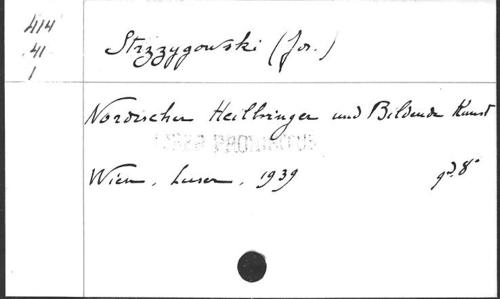 414
41
1
Strzzygowski (Jos.)
Nordischer Heilbringer und Bildende Kunst
Wien, Luser, 1939 gd. 8°